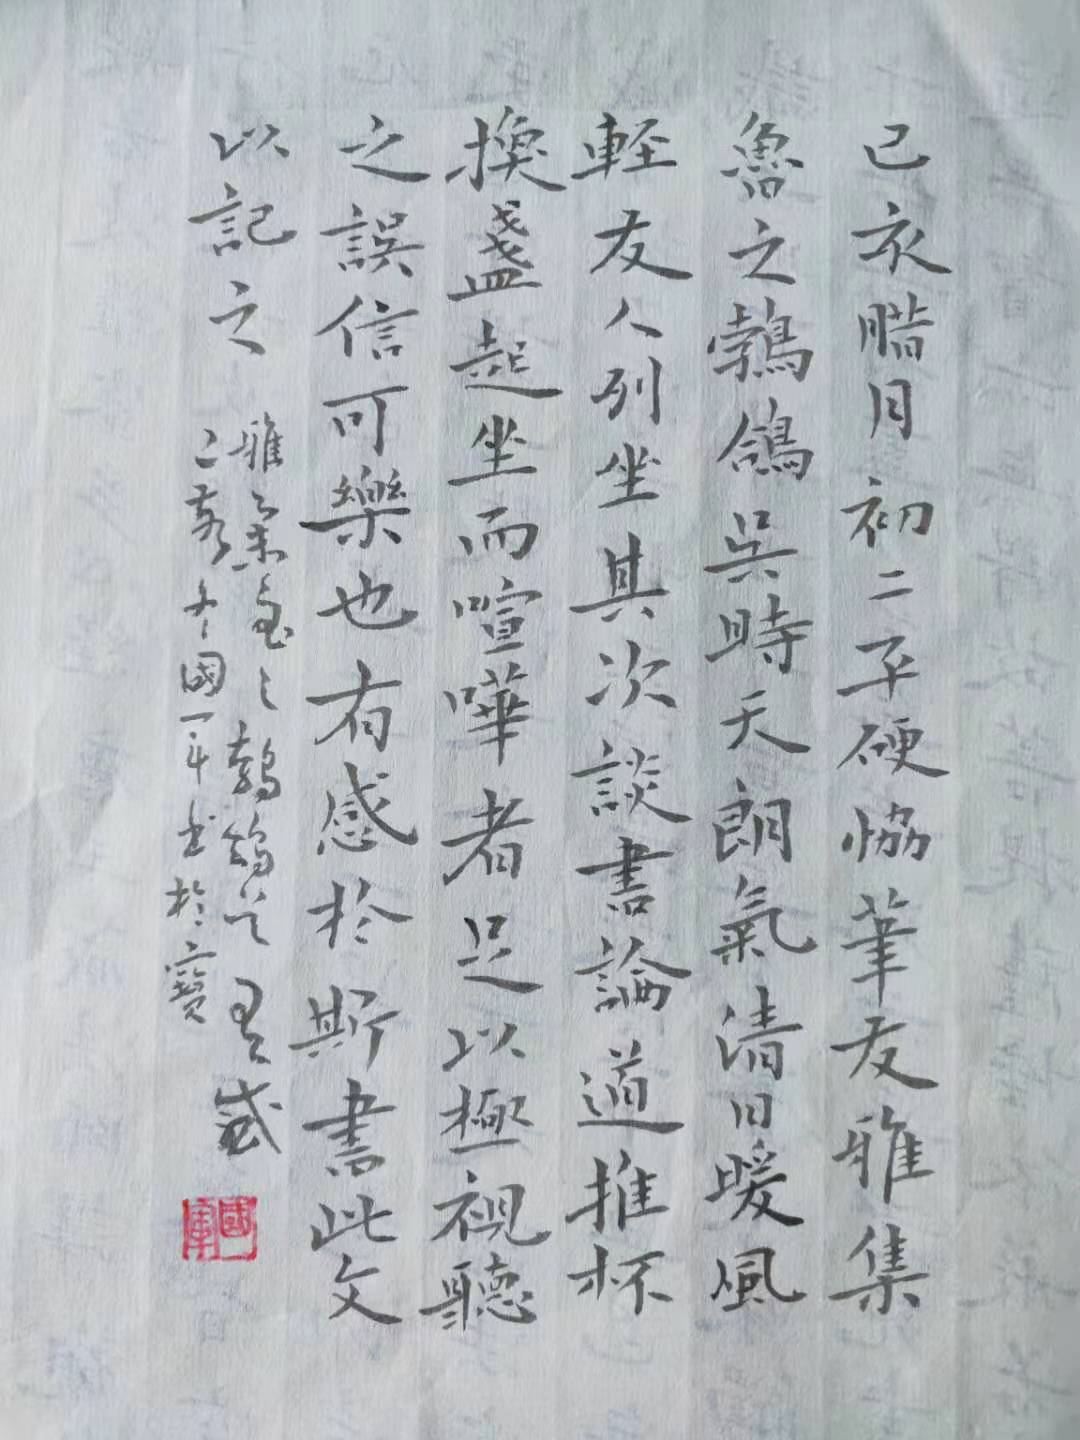 己亥腊月初二平硬协筆友雅集
魯之鹁鴿吴時天朗氣清日暖風
輕友人列坐其次談書論道推杯
換盏起坐而喧嘩者足以極視聽
之誤信可樂也有感於斯書此文
以記之
雅集魯之鹁鴿吴有感
己亥冬國軍書於寶
國軍